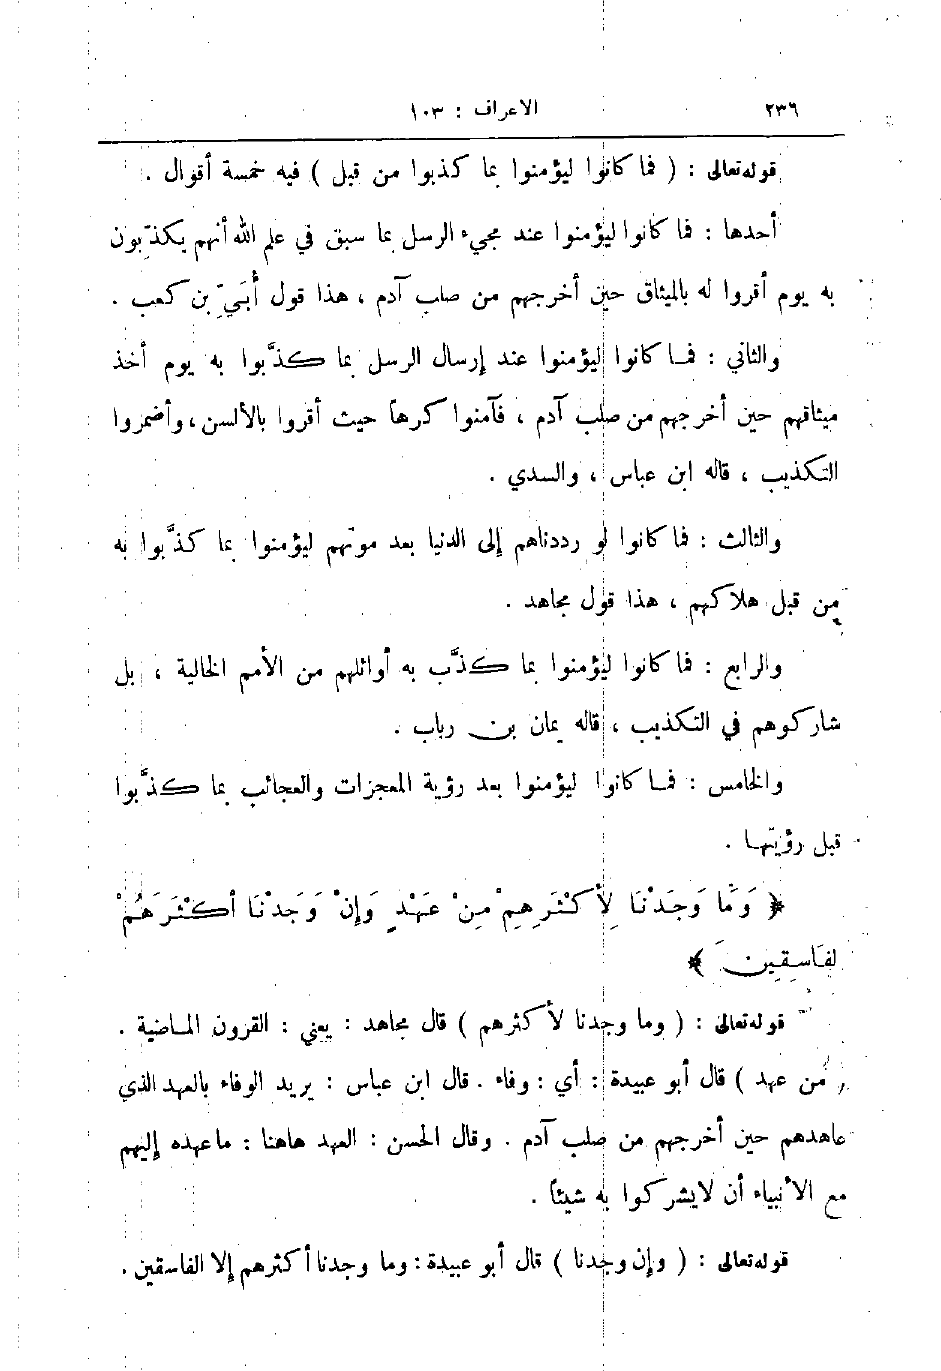 ٢٣٦ الاعراف : ١٠٣
قوله تعالى : ( فما كانوا ليؤمنوا بما كذبوا من قبل ) فيه خمسة أقوال .
أحدها : فما كانوا ليؤمنوا عند مجيء الرسل بما سبق في علم الله أنهم يكذِّبون
به يوم أقروا له بالميثاق حين أخرجهم من صلب آدم ، هذا قول أُبَيِّ بن كعب .
والثاني : فما كانوا ليؤمنوا عند إرسال الرسل بما كذَّبوا به يوم أخذ
ميثاقهم حين أخرجهم من صلب آدم ، فآمنوا كرهاً حيث أقروا بالألسن ، وأضمروا
التكذيب ، قاله ابن عباس ، والسدي .
والثالث : فما كانوا لو رددناهم إلى الدنيا بعد موتهم ليؤمنوا بما كذَّبوا به
من قبل هلاكهم ، هذا قول مجاهد .
والرابع : فما كانوا ليؤمنوا بما كذَّب به أوائلهم من الأمم الخالية ، بل
شاركوهم في التكذيب ، قاله يمان بن رباب .
والخامس : فما كانوا ليؤمنوا بعد رؤية المعجزات والعجائب بما كذَّبوا
قبل رؤيتها .
﴿ وَمَا وَجَدْنَا لِأَكْثَرِهِمْ مِنْ عَهْدٍ وَإِنْ وَجَدْنَا أَكْثَرَهُمْ
لَفَاسِقِينَ ﴾
قوله تعالى : ( وما وجدنا لأكثرهم ) قال مجاهد : يعني : القرون الماضية .
( من عهد ) قال أبو عبيدة : أي : وفاء . قال ابن عباس : يريد الوفاء بالعهد الذي
عاهدهم حين أخرجهم من صلب آدم . وقال الحسن : العهد هاهنا : ما عهده إليهم
مع الأنبياء أن لا يشركوا به شيئاً .
قوله تعالى : ( وإن وجدنا ) قال أبو عبيدة : وما وجدنا أكثرهم إلا الفاسقين .